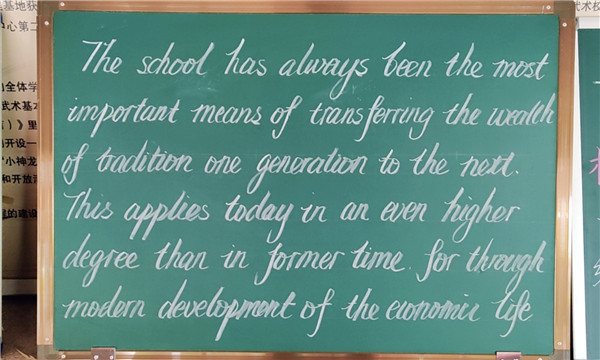 The school has always been the most
important means of transferring the wealth
of tradition one generation to the next.
This applies today in an even higher
degree than in former time. for through
modern development of the economic life
基地获
心第二
全体学
武术基本
》里
开设一
"小神龙
和开放
的建设
武术校